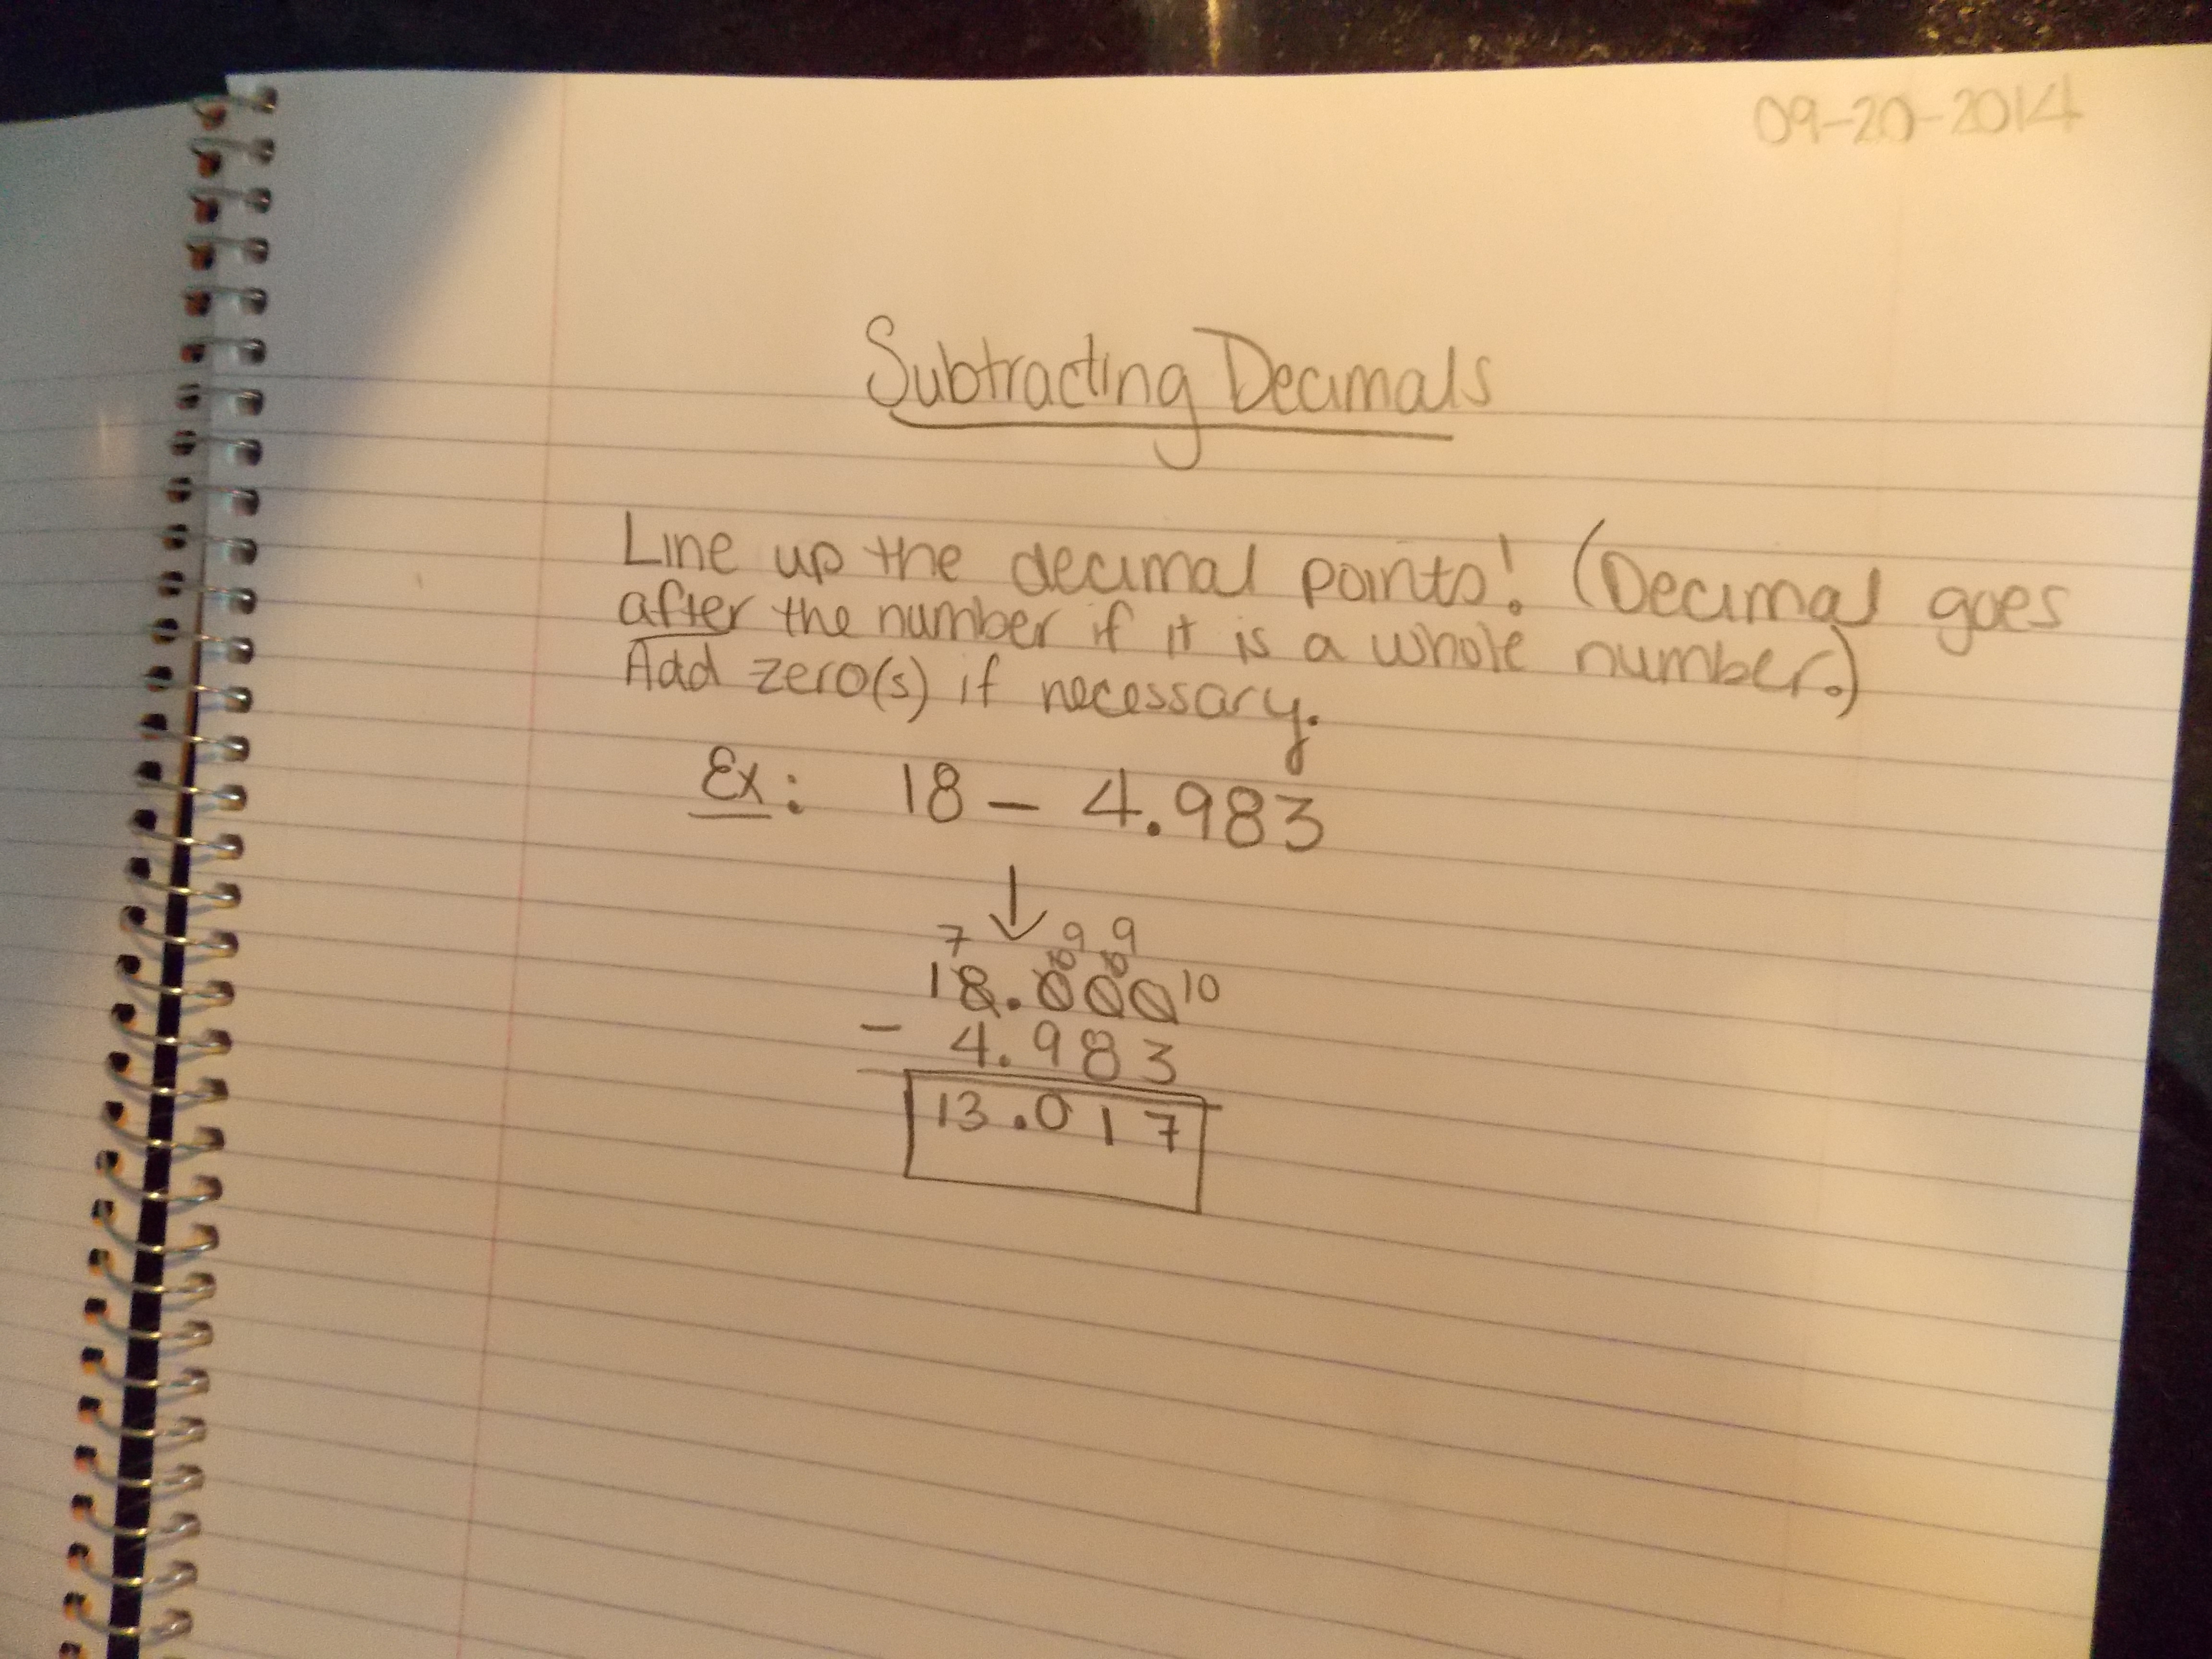 09-20-2014
Subtracting Decimals
Line up the decimal points! (Decimal goes
after the number if it is a whole number.)
Add zero(s) if necessary.
Ex: 18 - 4.983
↓
7 9 9
10 10
18.000 10
- 4.983
13.017